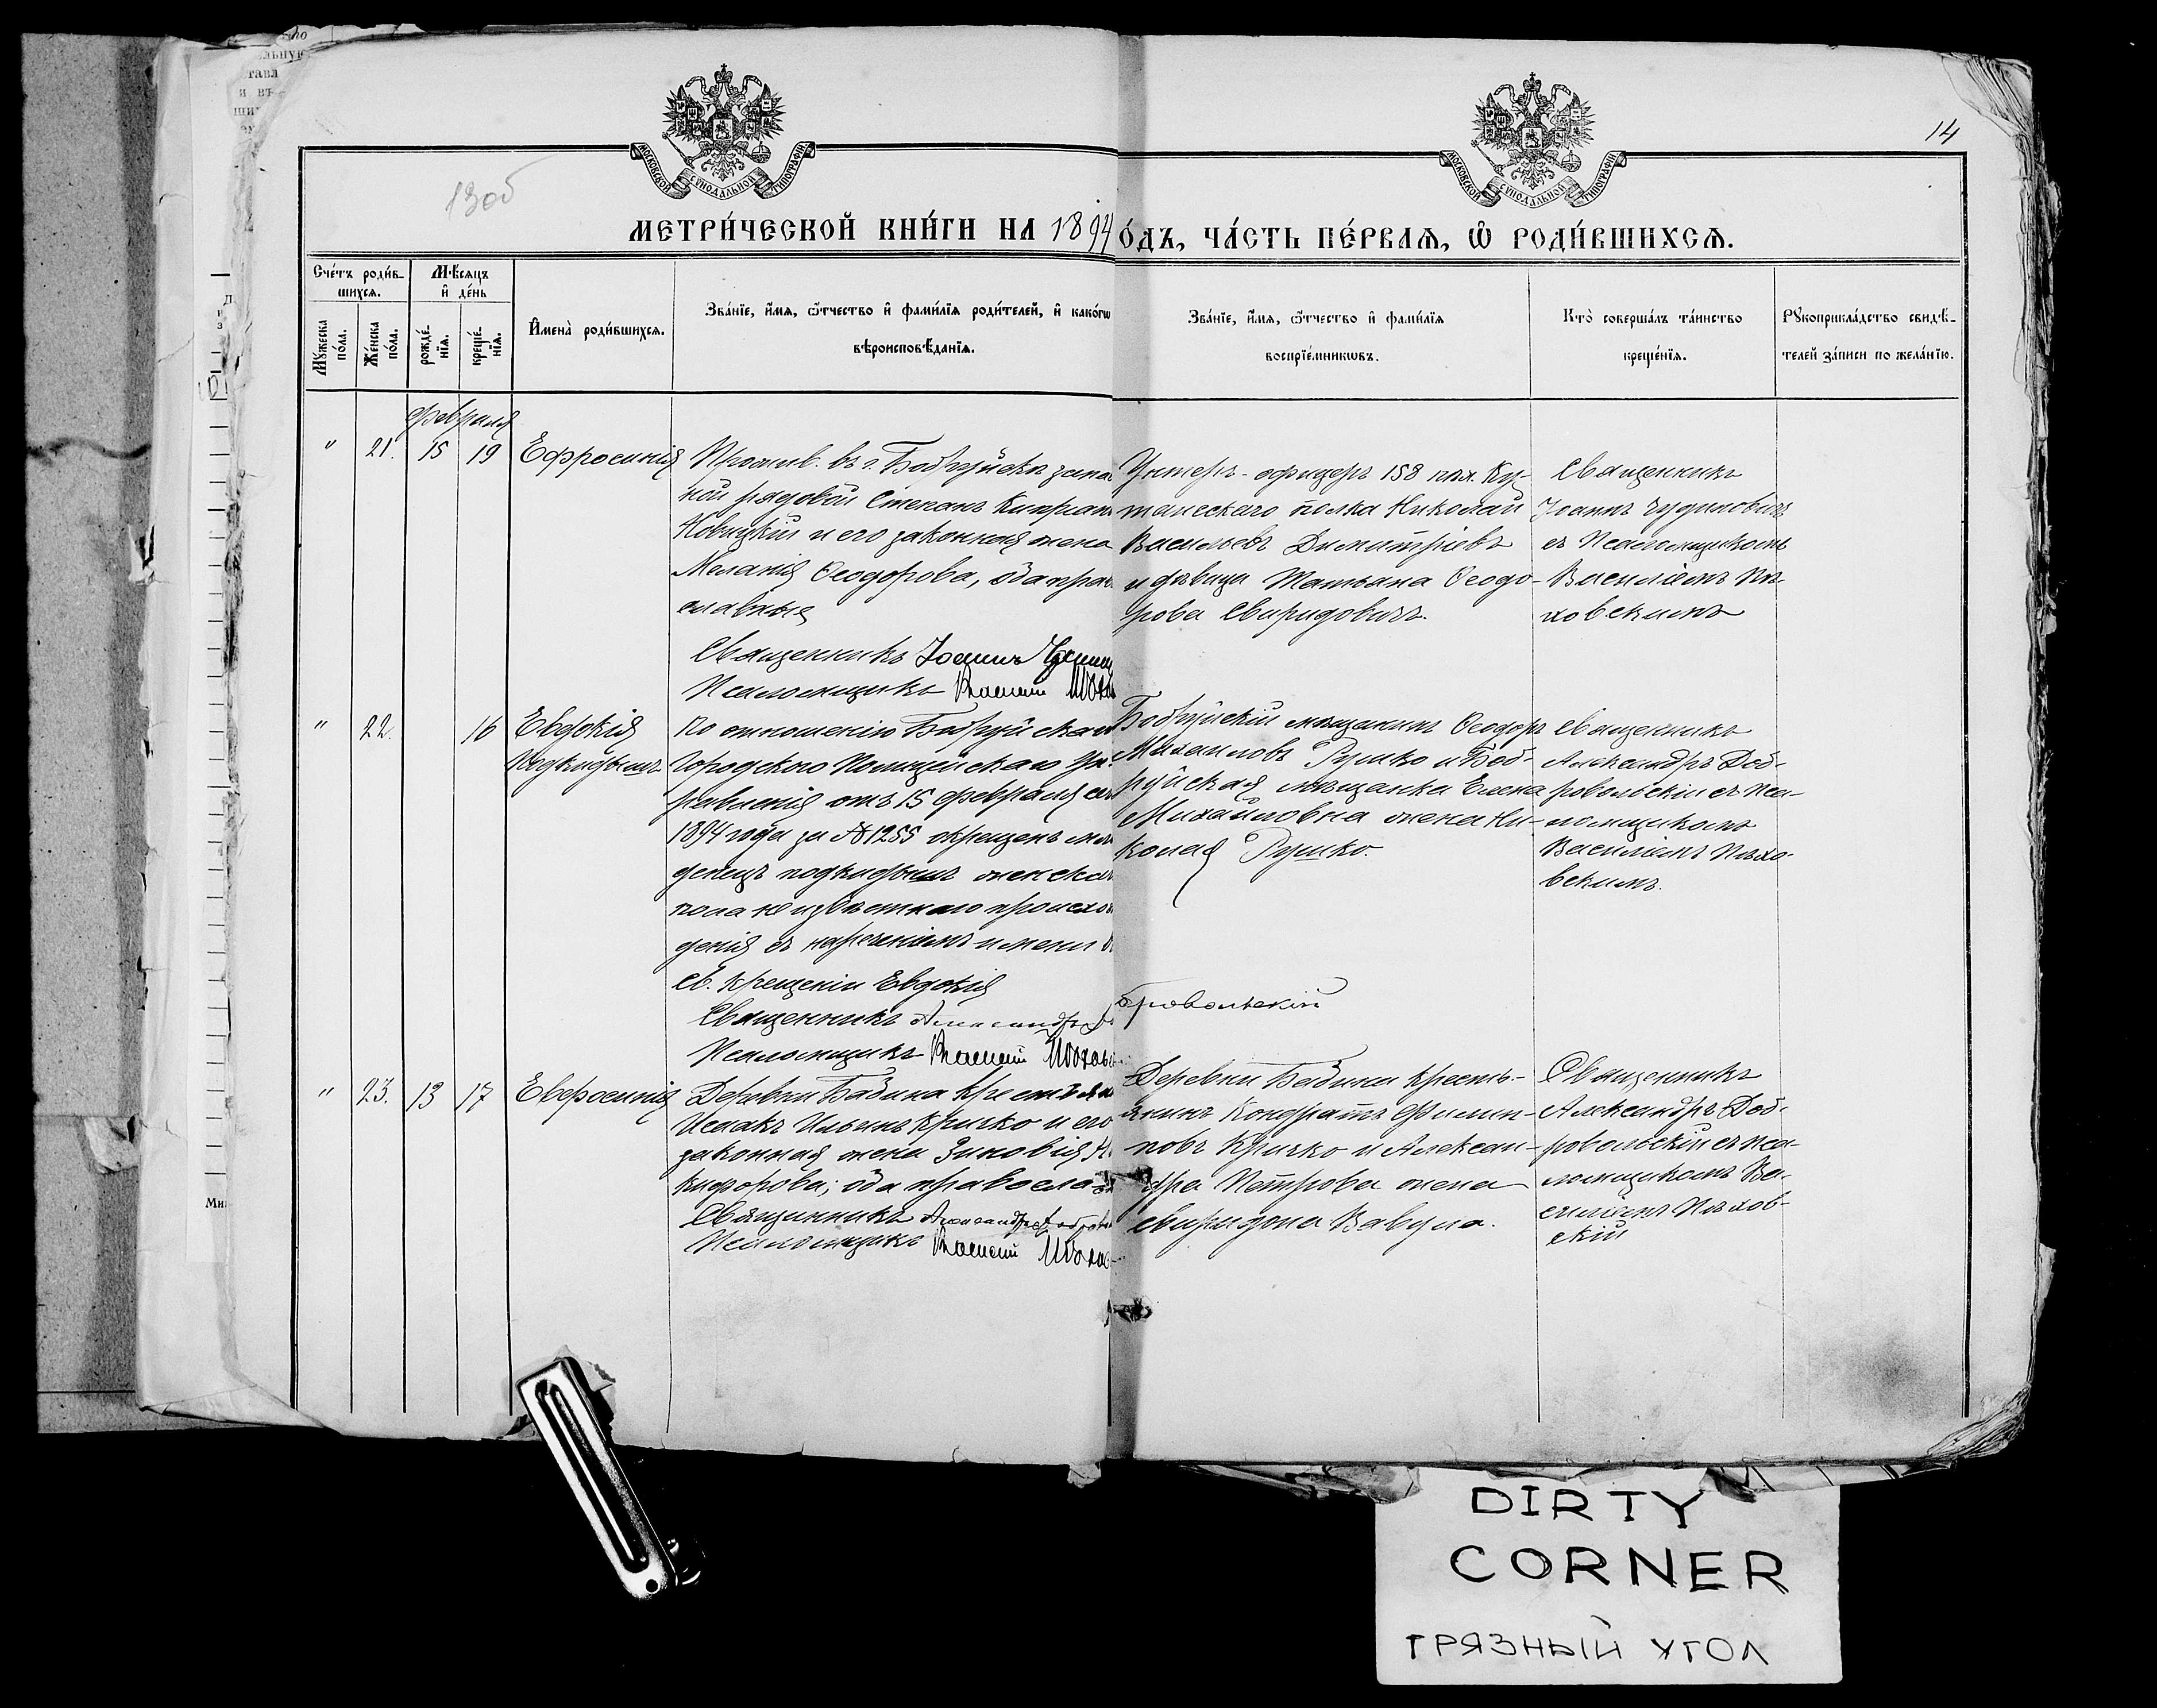 14
13об
МОСКОВСКОЙ СУНОДАЛЬНОЙ ТИПОГРАФІИ
МОСКОВСКОЙ СУНОДАЛЬНОЙ ТИПОГРАФІИ
МЕТРИ́ЧЕСКОЙ КНИ́ГИ НА 1894
О́ДЪ, ЧА́СТЬ ПЕ́РВАѦ, Ѽ РОДИ́ВШИХСѦ.
Сче́тъ роди́в-
шихсѧ.
Мꙋ́жеска
по́ла.
Же́нска
по́ла.
Мѣ́сѧцъ
и҆ де́нь
рожде́-
нїѧ.
креще́-
нїѧ.
И҆мена̀ роди́вшихсѧ.
Зва́нїе, и҆́мѧ, ѻ҆́тчество и҆ фами́лїѧ роди́телей, и҆ како́гѡ
вѣроисповѣ́данїѧ.
Зва́нїе, и҆́мѧ, ѻ҆́тчество и҆ фами́лїѧ
воспрїе́мникѡвъ.
Кто̀ соверша́лъ та́инство
креще́нїѧ.
Рꙋкоприкла́дство свидѣ́-
телей за́писи по жела́нїю.
февраля
" 21. 15 19 Ефросинія
Прожив. въ г. Бобруйскѣ запас
ной рядовой Степанъ Кипріан
Новицкій и его законная жена
Меланія Ѳеодорова, оба прав
славные
Священникъ Іоаннъ
Псаломщикъ Василій
Унтеръ-офицеръ 158 пѣх. Ку-
таисскаго полка Николай
Васильевъ Димитріевъ
и дѣвица Татьяна Ѳеодо-
рова Свиридовичъ.
Священникъ
Іоаннъ Чудиловичъ
съ Псаломщикомъ
Василіемъ Пѣ-
ховскимъ
" 22. 16 Евдокія
Подкидышъ
По отношенію Бобруйскаго
Городского Полицейскаго Уп-
равленія отъ 15 февраля сего
1894 года за № 1255 окрещенъ мла
денецъ подкидышъ женскаго
пола неизвѣстнаго происхож
денія съ нареченіемъ имени въ
св. крещеніи Евдокія
Священникъ Александръ До
бровольскій
Псаломщикъ Василій
Бобруйскій мѣщанинъ Ѳеодоръ
Михаиловъ Румко и Боб-
руйская мѣщанка Елена
Михайловна жена Ни-
колая Румко.
Священникъ
Александръ Доб-
ровольскій съ пса-
ломщикомъ
Василіемъ Пѣхо-
вскимъ.
" 23. 13 17 Евфросинія
Деревни Бабина крестьян
Исаакъ Ильинъ Кричко и его
законная жена Зиновія Ни
кифорова; оба правосла
Священникъ Александръ Добров
Псаломщикъ Василій
Деревни Бабина кресть-
янинъ Кондратъ Филип-
повъ Кричко и Алексан-
дра Петрова жена
Свиридона Вавула.
Священникъ
Александръ Доб-
ровольскій съ пса-
ломщикомъ Ва-
силіемъ Пѣхов-
скій
DIRTY
CORNER
ГРЯЗНЫЙ УГОЛ